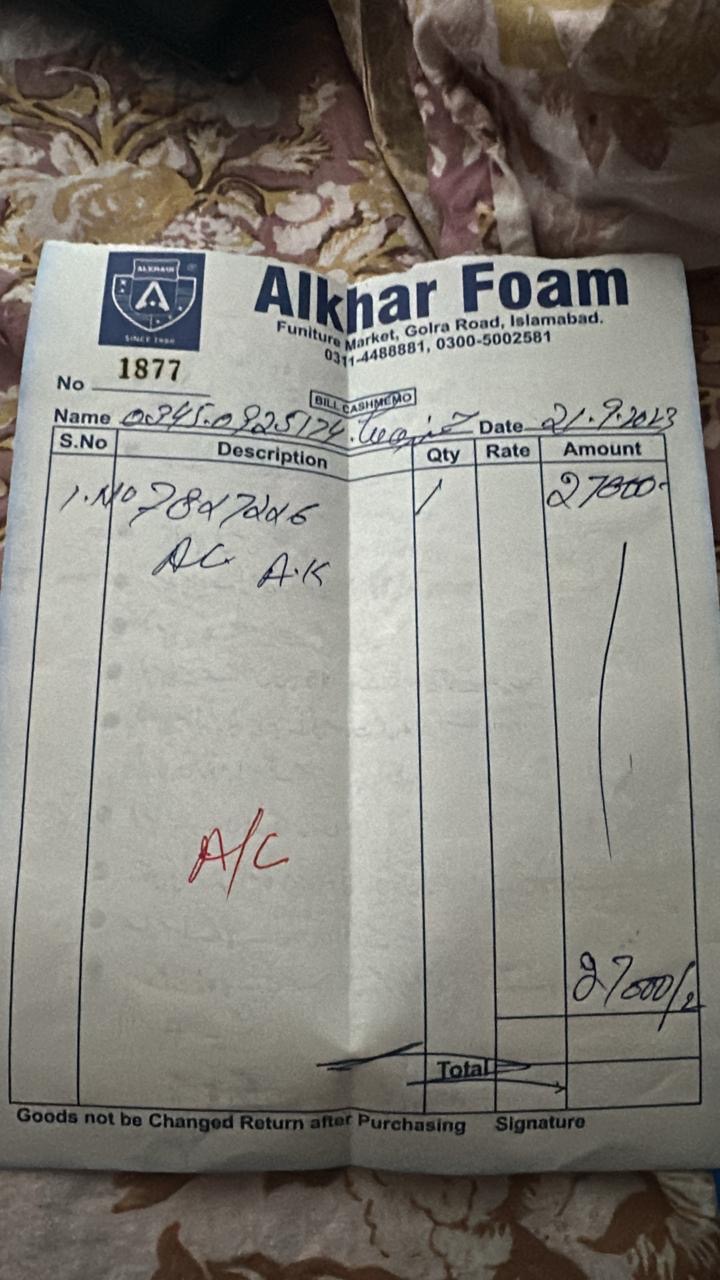 ALKHAIR
SINCE 1980
Alkhar Foam
Funiture Market, Golra Road, Islamabad.
0311-4488881, 0300-5002581
No 1877
BILL CASHMEMO
Name 0345.0925174. Date 21.9.2023
S.No Description Qty Rate Amount
1. No 78x72x6 1 27000-
AC A.K
A/C
27000/-
Total
Goods not be Changed Return after Purchasing Signature